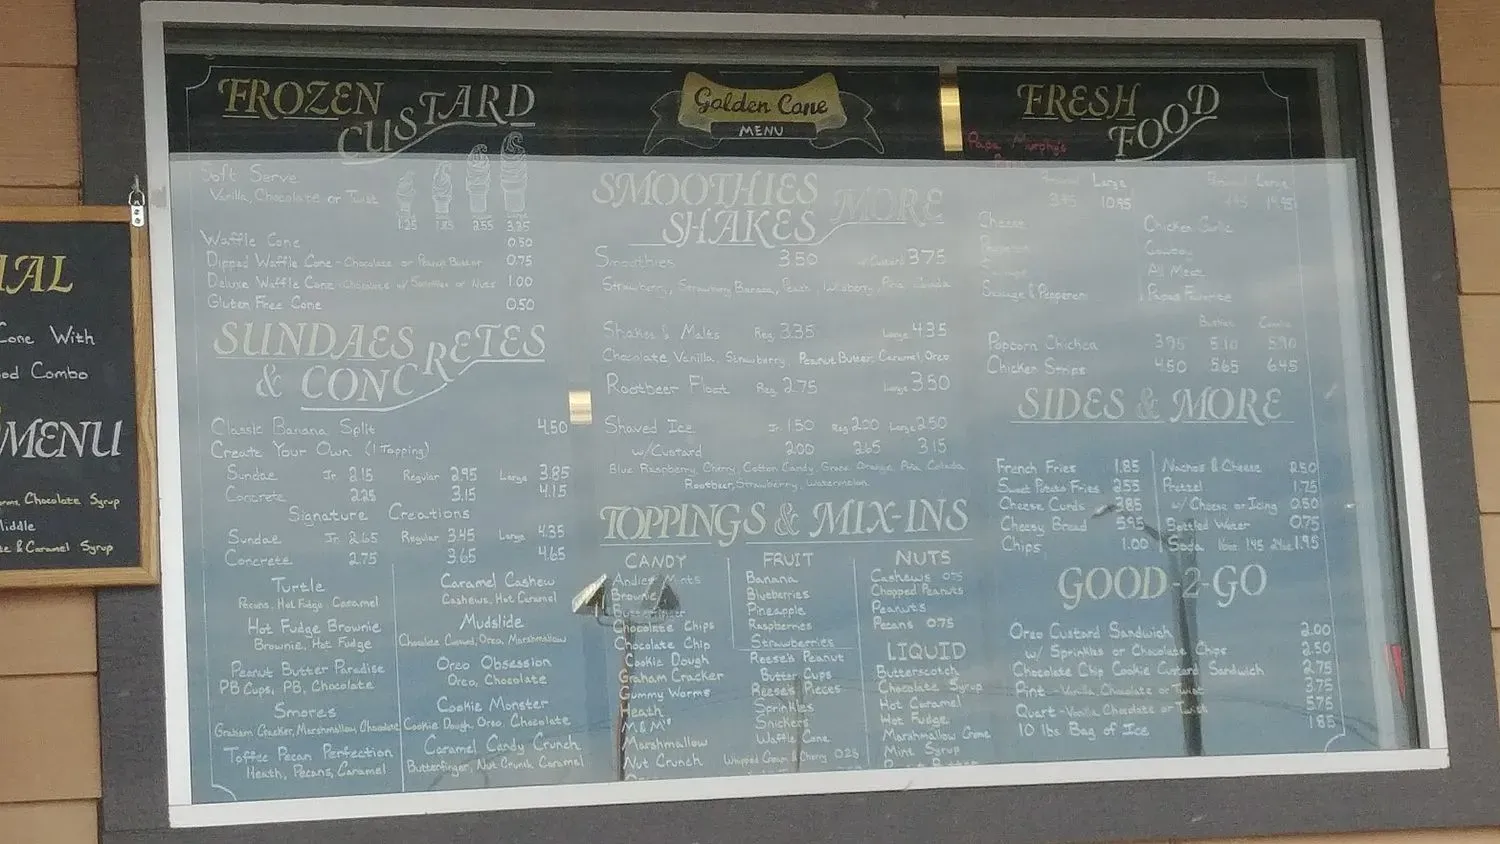 IAL
Cone With
od Combo
MENU
Chocolate Syrup
iddle
& Caramel Syrup
FROZEN
CUSTARD
Soft Serve
Vanilla, Chocolate or Twist
1.25 1.85 2.55 3.25
Waffle Cone 0.50
Dipped Waffle Cone - Chocolate or Peanut Butter 0.75
Deluxe Waffle Cone - Chocolate w/ Sprinkles or Nuts 1.00
Gluten Free Cone 0.50
SUNDAES
& CONCRETES
Classic Banana Split 4.50
Create Your Own (1 Topping)
Sundae Jr. 2.15 Regular 2.95 Large 3.85
Concrete 2.25 3.15 4.15
Signature Creations
Sundae Jr. 2.65 Regular 3.45 Large 4.35
Concrete 2.75 3.65 4.65
Turtle
Pecans, Hot Fudge, Caramel
Hot Fudge Brownie
Brownie, Hot Fudge
Peanut Butter Paradise
PB Cups, PB, Chocolate
Smores
Graham Cracker, Marshmallow, Chocolate
Toffee Pecan Perfection
Heath, Pecans, Caramel
Caramel Cashew
Cashews, Hot Caramel
Mudslide
Chocolate Custard, Oreo, Marshmallow
Oreo Obsession
Oreo, Chocolate
Cookie Monster
Cookie Dough, Oreo, Chocolate
Caramel Candy Crunch
Butterfinger, Nut Crunch, Caramel
Golden Cone
MENU
SMOOTHIES
SHAKES MORE
Smoothies 3.50 w/ Custard 3.75
Strawberry, Strawberry Banana, Peach, Wildberry, Pina Colada
Shakes & Malts Reg. 3.35 Large 4.35
Chocolate, Vanilla, Strawberry, Peanut Butter, Caramel, Oreo
Rootbeer Float Reg. 2.75 Large 3.50
Shaved Ice Jr. 1.50 Reg. 2.00 Large 2.50
w/Custard 2.00 2.65 3.15
Blue Raspberry, Cherry, Cotton Candy, Grape, Orange, Pina Colada
Rootbeer, Strawberry, Watermelon
TOPPINGS & MIX-INS
CANDY
Andies Mints
Brownie
Butterfinger
Chocolate Chips
Chocolate Chip
Cookie Dough
Graham Cracker
Gummy Worms
Heath
M&M's
Marshmallow
Nut Crunch
FRUIT
Banana
Blueberries
Pineapple
Raspberries
Strawberries
Reese's Peanut
Butter Cups
Reese's Pieces
Sprinkles
Snickers
Waffle Cone
Whipped Cream & Cherry 0.25
NUTS
Cashews 0.75
Chopped Peanuts
Peanuts
Pecans 0.75
LIQUID
Butterscotch
Chocolate Syrup
Hot Caramel
Hot Fudge
Marshmallow Creme
Mint Syrup
Peanut Butter
FRESH
FOOD
Papa Murphy's
Personal Large Personal Large
3.95 10.95 14.95
Cheese
Pepperoni
Sausage
Sausage & Pepperoni
Chicken Garlic
Cowboy
All Meat
Papa's Favorite
Basket Combo
Popcorn Chicken 3.95 5.10 5.90
Chicken Strips 4.50 5.65 6.45
SIDES & MORE
French Fries 1.85
Sweet Potato Fries 2.55
Cheese Curds 3.85
Cheesy Bread 5.95
Chips 1.00
Nachos & Cheese 2.50
Pretzel 1.75
w/ Cheese or Icing 0.50
Bottled Water 0.75
Soda 16oz 1.45 24oz 1.95
GOOD-2-GO
Oreo Custard Sandwich 2.00
w/ Sprinkles or Chocolate Chips 2.50
Chocolate Chip Cookie Custard Sandwich 2.75
Pint - Vanilla, Chocolate or Twist 3.75
Quart - Vanilla, Chocolate or Twist 5.75
10 lbs Bag of Ice 1.85